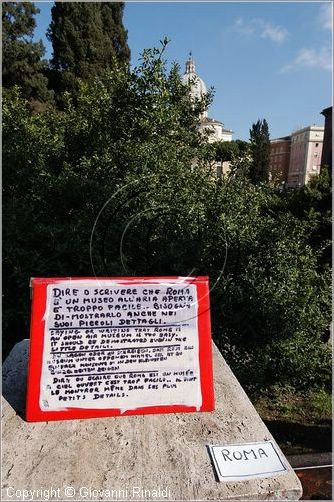 DIRE O SCRIVERE CHE ROMA
È UN MUSEO ALL'ARIA APERTA
È TROPPO FACILE.. BISOGNA
DI-MOSTRARLO ANCHE NEI
SUOI PICCOLI DETTAGLI.
SAYING OR WRITING THAT ROME IS
AN OPEN AIR MUSEUM IS TOO EASY.
IT SHOULD BE DEMONSTRATED EVEN IN THE
LITTLE DETAILS.
ZU SAGEN ODER
MUSEUM UNTER
DIRE OU ÉCRIRE QUE ROME EST UN MUSÉE
À CIEL OUVERT C'EST TROP FACILE.. IL FAUT
LE MONTRER MÊME DANS SES PLUS
PETITS DETAILS.
ROMA
Copyright © Giovanni Rinaldi